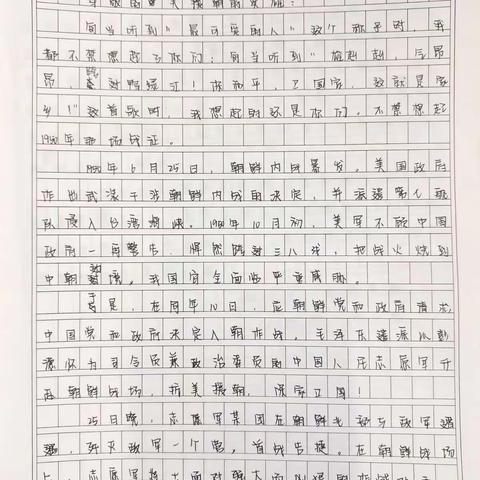 每当听到"最可爱的人"这个称呼时，我
都不禁想起了你们；每当听到"雄赳赳，气昂
昂，跨过鸭绿江！保和平，卫国家，就是保家
乡！"这首歌时，我想起的还是你们。不禁想起
1950年那场战证。
1950年6月25日，朝鲜内战爆发。美国政府
作出武装干涉朝鲜内战的决定，并派遣第七舰
队侵入台湾海峡。1950年10月初，美军不顾中国
政府一再警告，悍然越过三八线，把战火烧到
中朝边境。我国安全面临严重威胁。
于是，在同年10日，应朝鲜党和政府请求，
中国党和政府决定入朝作战，毛泽东遂派以彭
德怀为司令员兼政治委员的中国人民志愿军开
赴朝鲜战场，抗美援朝，保家卫国！
25日晚，志愿军某团在朝鲜与敌军遭
遇，歼灭敌军一个营，首战告捷。在朝鲜战场
上，志愿军将士面对强大而